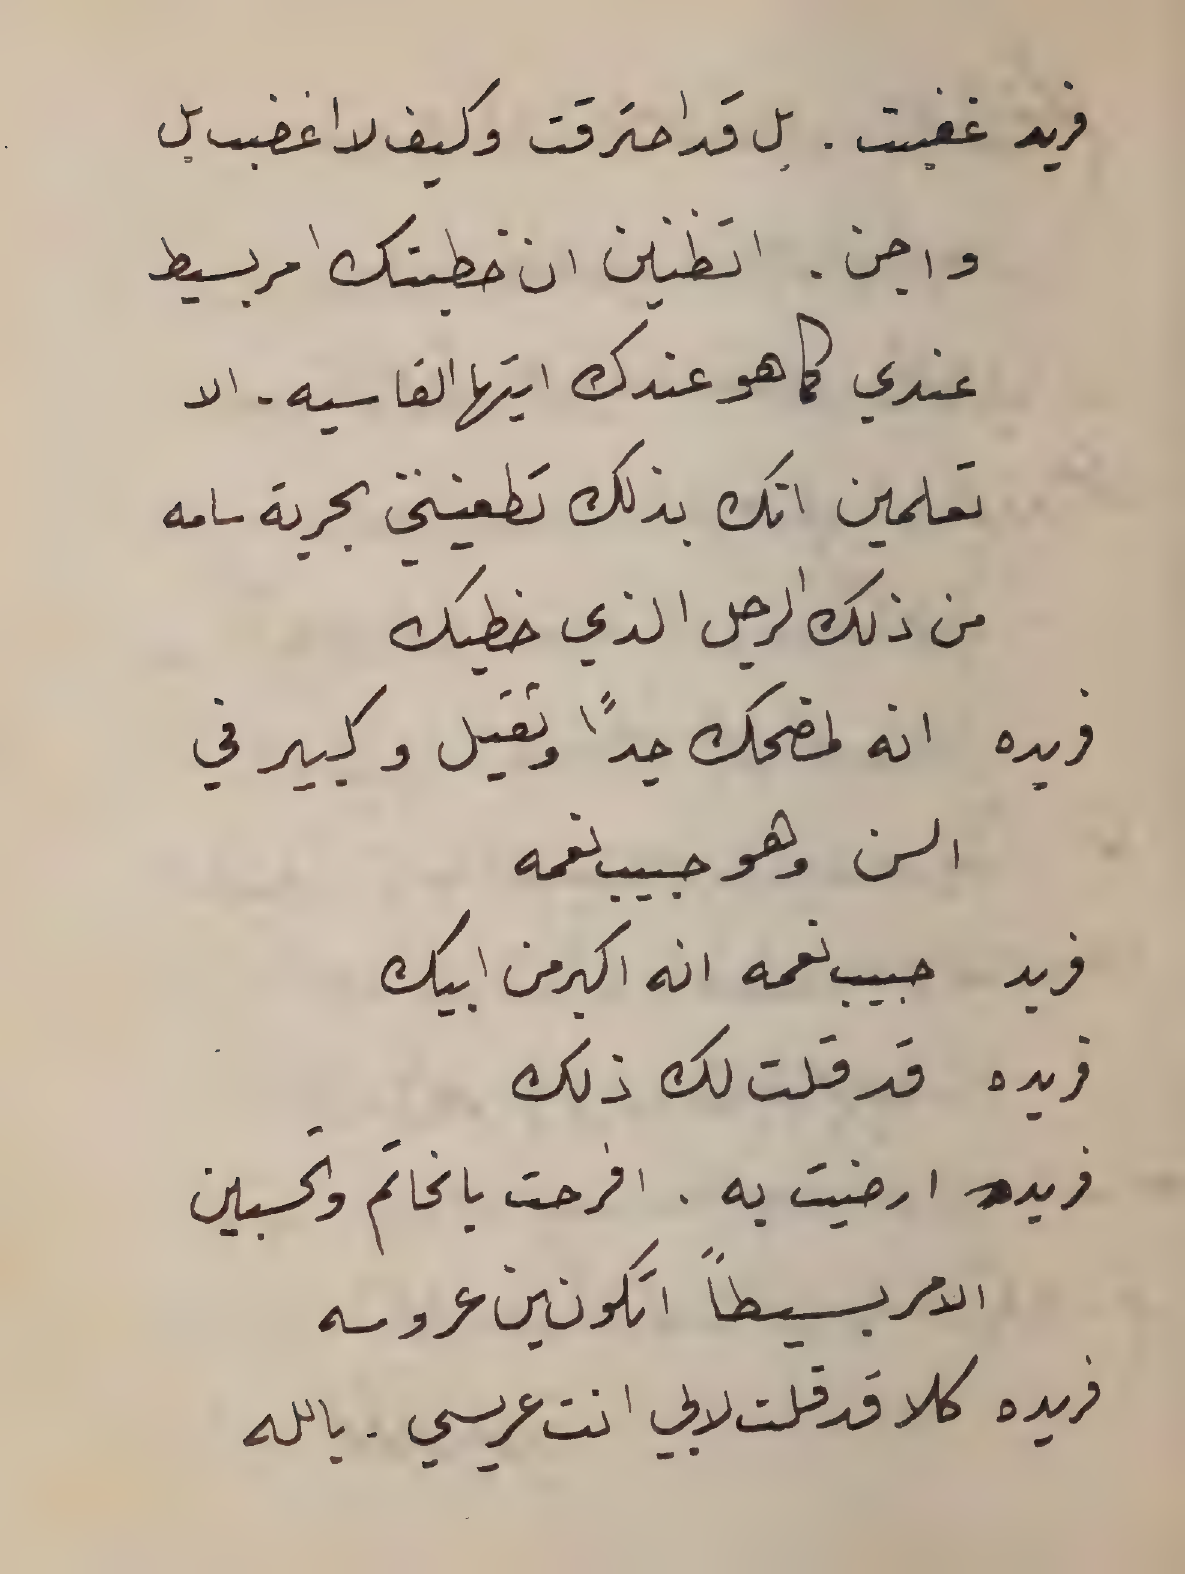 فريد غضبت . بل قد احترقت وكيف لا اغضب بل
واجن . اتظنين ان خطبتك امر بسيط
عندي كما هو عندك ايتها القاسيه - الا
تعلمين انك بذلك تطعينني بحربة سامه
من ذلك الرجل الذي خطبك
فريده انه لمضحك جداً وثقيل وكبير في
السن وهو حبيب نعمه
فريد حبيب نعمه انه اكبر من ابيك
فريده قد قلت لك ذلك
فريد ارضيت به . افرحت بالخاتم وتحسبين
الامر بسيطاً اتكونين عروسه
فريده كلا قد قلت لابي انت عريسي . يالله